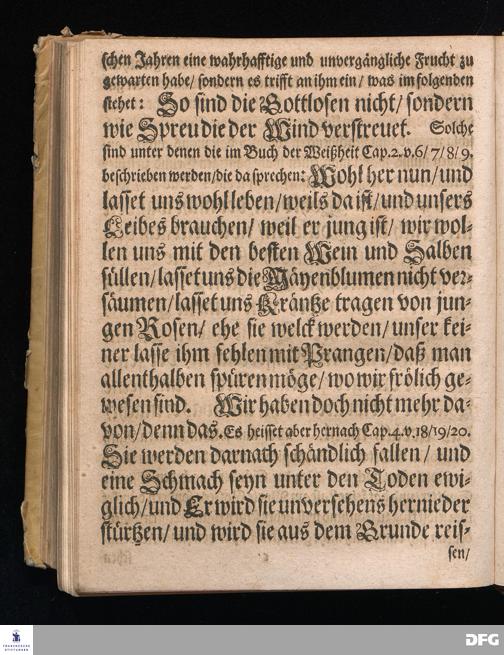 schen Jahren eine wahrhafftige und unvergängliche Frucht zu
gewarten habe/ sondern es trifft an ihm ein/ was im folgenden
stehet: So sind die Gottlosen nicht/ sondern
wie Spreu die der Wind verstreuet. Solche
sind unter denen die im Buch der Weißheit Cap.2. v.6/7/8/9.
beschrieben werden/die da sprechen: Wohl her nun/und
lasset uns wohl leben/weils da ist/und unsers
Leibes brauchen/ weil er jung ist/ wir wol-
len uns mit den besten Wein und Salben
füllen/lasset uns die Mäyenblumen nicht ver-
säumen/lasset uns Kräntze tragen von jun-
gen Rosen/ ehe sie welck werden/unser kei-
ner lasse ihm fehlen mit Prangen/daß man
allenthalben spüren möge/wo wir frölich ge-
wesen sind. Wir haben doch nicht mehr da-
von/denn das. Es heisset aber hernach Cap.4.v.18/19/20.
Sie werden darnach schändlich fallen/ und
eine Schmach seyn unter den Toden ewi-
glich/und Er wird sie unversehens hernieder
stürtzen/und wird sie aus dem Grunde reis-
sen/
FRANCKESCHE
STIFTUNGEN
DFG